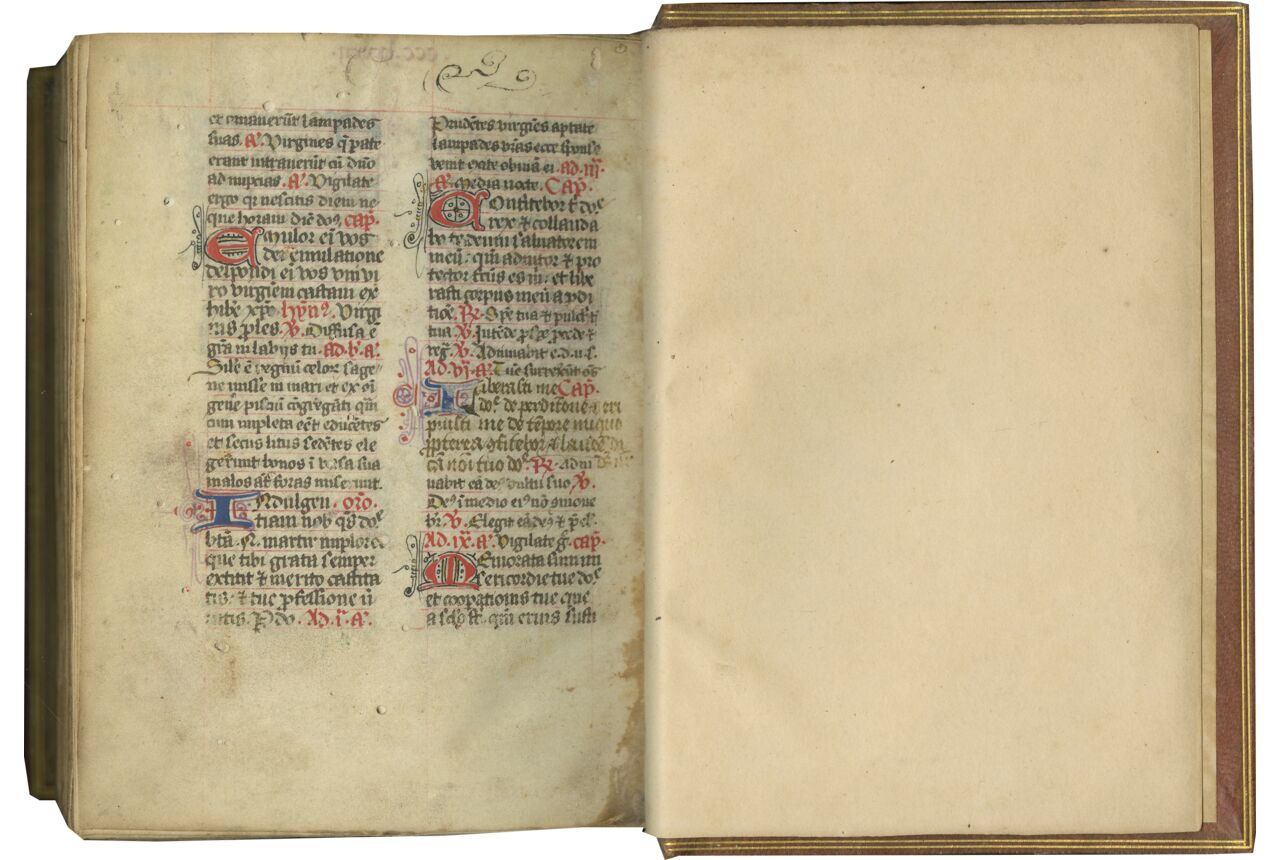 et ornaverūt lampades
suas. A͛. Virgines q̄ pate
erant intraverūt cū dn̄o
ad nupcias. A͛. Vigilate
ergo qr nescitis diem ne
que horam dic̄ dn̄s. cap̄.
Emulor eī vos
dei emulatione
despondi eī vos uni vi
ro virginem castam ex
hibe͛ xp̄o. hyn9. Virgi
nis ples. V͛. Diffusa ē
gr̄a in labijs tu. ad. b. a͛.
Sile ē regnū celor sage
ne misse in mari et ex oī
gen̄e pisciū cōgregāti qm̄
cum impleta eēt educētes
et secus litus sedētes ele
gerunt bonos ī vasa sua
malos aūt foras miserunt.
INdulgen. or̄o.
tiam nob qs̄ do͛
btā. N. martir implore
que tibi grata semper
extitit ⁊ merito castita
tis. ⁊ tue p̄fessione v̄
tutis. P do. Ad. i. a͛.
Prudētes virgīes aptate
lampades vr̄as ecce spōnse
venit exite obviā ei. ad. iij.
A͛. Media nocte. Cap̄.
Confitebor t̄ do͛
rex ⁊ collauda
bo te deum salvatorem
meū. qm̄ adiutor ⁊ pro
tector fc̄us es m̄. et libe
rasti corpus meū a pdi
tiōe. R͛. Spē tua ⁊ pulcħ t
tua V͛. Intēde pspe pcede ⁊
reg͛. V͛. Adiuvabit e. d. v. s.
Ad. vj. a͛. Tūc surrexūt oēs
Liberasti me Cap̄.
do͛ de perditione ⁊ eri
puisti me de tēpore iniquo
ppterea ꝯfitebor ⁊ laudē di
cā noī tuo do͛. R͛. adiu
vabit eā de9 vultu suo V͛.
De9 ī medio ei9 nō ꝯmove
br͛ V͛. Elegit eā de9 ⁊ p̄el.
Ad. ix. a͛. Vigilate g͛. cap̄.
Memorata sum m
sericordie tue do͛
et coopationis tue que
a sclō st͛. qm̄ eruis susti